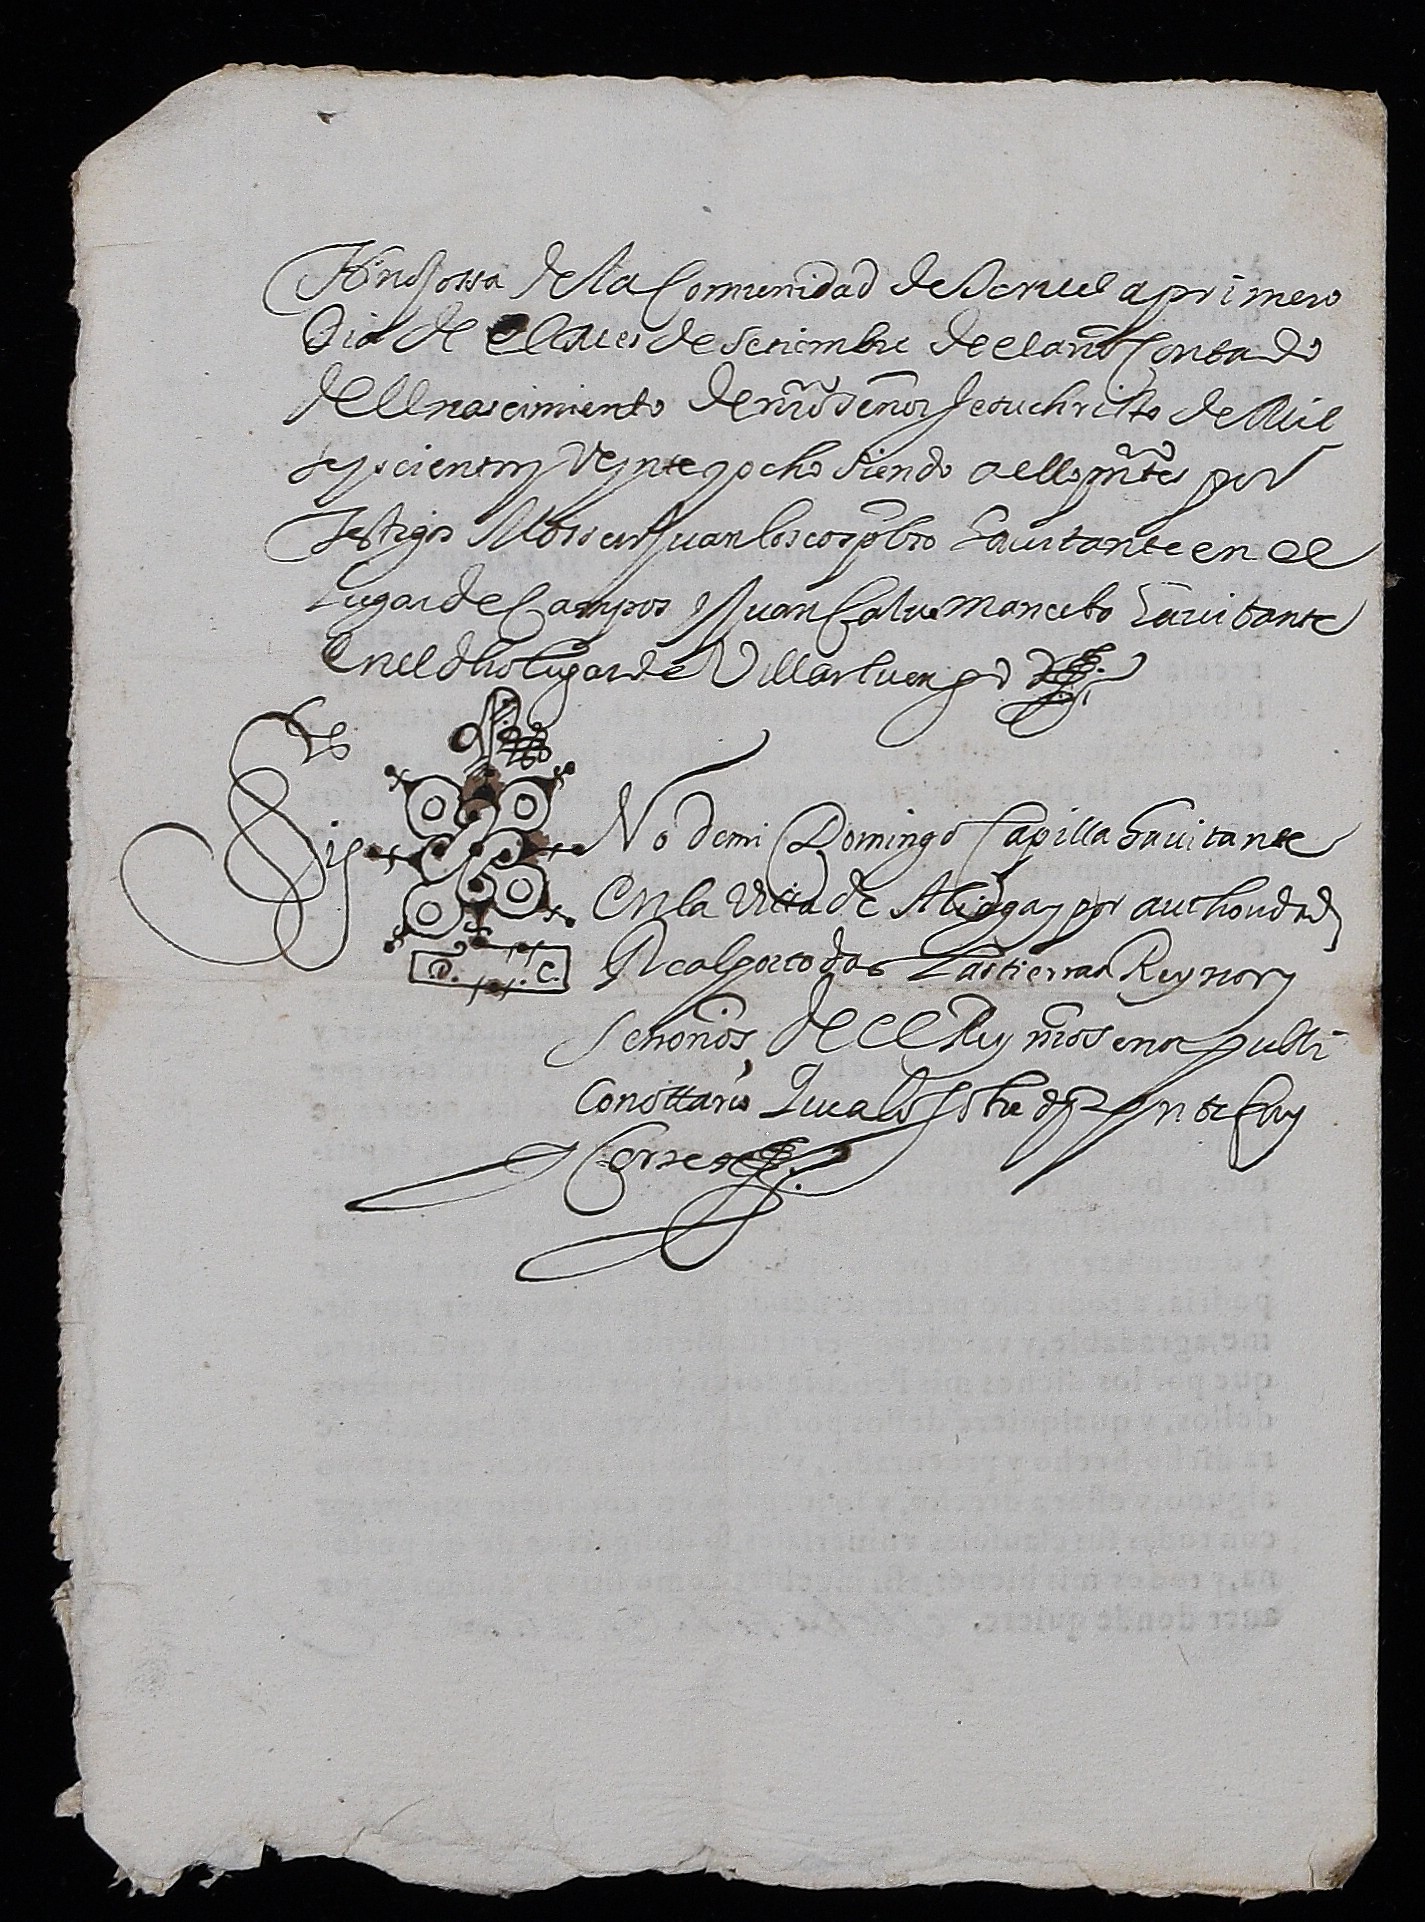 Hinojossa de la Comunidad de Teruel a primero
dia de el Mes de Setiembre de el año Contado
del nascimiento de nr̃o señor Jesuchristo de Mil
seyscientos Veynte y ocho siendo a ello pñtes por
Testigos Mossen Juan loscos pbro hauitante en el
Lugar de Campos y Juan Calue mancebo hauitante
En el dho lugar de Villarluengo
Sig No de mi Domingo Capilla hauitante
En la Villa de Aliaga y por authoridad
Real por todas las tierras Reynos y
Señorios de el Rey nr̃o señor publi
co nottario que a lo sobre dho pñte fuy
Et Cerre
D. . C.